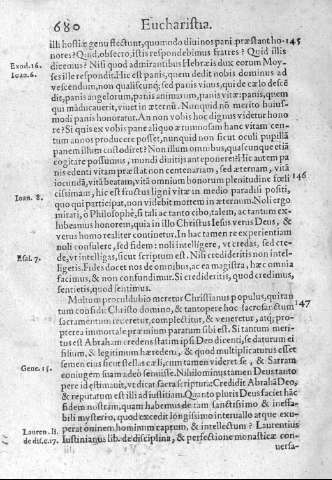 680 Eucharistia.
illi hostiæ genu flectunt, quomodo divino s pani præstant ho-145
nores? Quid, obsecro, istis respondebimus fratres? Quid illis
diremus? Nisi quod admirantibus Hebræis dux eorum Moy-
Exod.16.
ses ille respondit. Hic est panis, quem dedit nobis dominus ad
Ioan.6.
vescendum, non qualiscunq; sed panis vivus, qui de cælo descē-
dit, panis angelorum, panis animarum, panis vitæ: panis, quem
qui māducaverit, vivet in æternū. Nunquid nō merito huius-
modi panis honoratur. An non vobis hoc dignus videtur hono
re? Si quis ex vobis pane aliquo æternum hanc vitam cen-
tum annos producere posset, nunquid non sicut oculi pupillā
panem illum custodiret? Non illum omnibus, quascunque etiā
cogitare possumus, mundi divitijs anteponeret? Hic autem pa
nis edenti vitam præstat non centenariam, sed æternam, vitā
iocundā, vitā beatam, vitā omnium bonorum plenitudine fœli 146
cissimam, hic est fructus ligni vitæ in medio paradisi positi,
Ioan. 8.
quo qui participat, non videbit mortem in æternum. Noli ergo
mirari, o Philosophe, si tali ac tanto cibo, talem, ac tantum ex-
hibeamus honorem, quia in illo Christus Iesus verus Deus, &
verus homo realiter continetur. In hac tamen re experientiam
noli consulere, sed fidem: noli intelligere, vt credas, sed cre-
Esai. 7.
de, vt intelligas, sicut scriptum est. Nisi credideritis non intel-
ligetis. Fides docet nos de omnibus, ac ea magistra, hæc omnia
facimus, & non confundimur. Si crederitis, quod credimus,
sentietis, quod sentimus.
Multum proculdubio meretur Christianus populus, qui tan
tum confidit Christo domino, & tantopere hoc sacrosanctum 147
sacramentum reveretur, complectitur, & veneretur, atq; pro-
pterea immortale præmium paratum sibi est. Si tantum meri-
tus est Abraham credens statim ipsi Deo dicenti, se daturum ei
filium, & legitimum hæredem, & quod multiplicatus esset
semen eius sicut stellæ cæli, cum tamen videret se, & Sarram
Gene.15.
coniugem suam adeò senuisse. Nihilominus tamen Deus tanto
pere id æstimauit, vt dicat sacra scriptura: Credidit Abrahā Deo,
& reputatum est illi ad iustitiam. Quanto pluris Deus faciet hāc
fidem nostram, quam habemus de tam sanctissimo & ineffa-
bili mysterio, quod excedit longissimo intervallo atque exu-
perat omnem hominum captum, & intellectum? Laurentius
Lauren. li.
Iustinianus lib. de disciplina, & perfectione monasticæ con-
de dis.c.17.
versa-